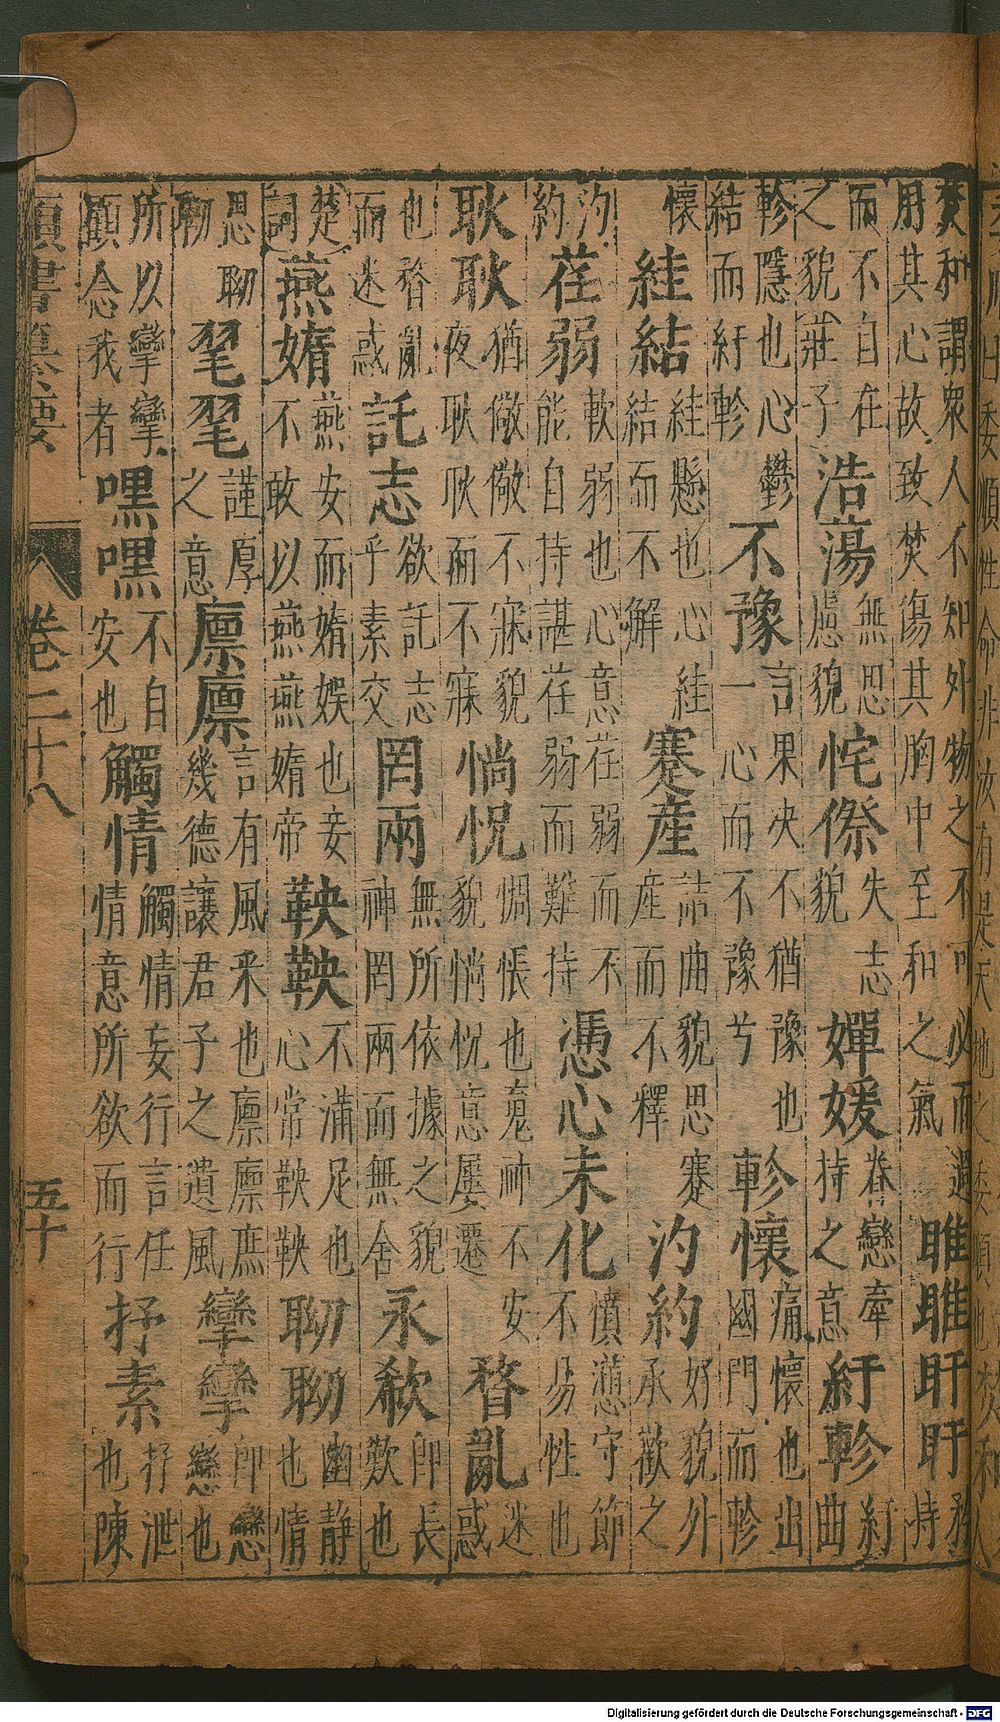 焚和謂衆人不知外物之不可必而過用其心故致焚傷其胸中至和之氣 睢睢盱盱 矜持
而不自在之貌莊子 浩蕩 無思慮貌 侘傺 失志貌 嬋媛 眷戀牽持之意 紆軫 紆曲
軫隱也心鬱結而紆軫 不豫 言果決不猶豫也一心而不豫兮 軫懷 痛懷也出國門而軫
懷 絓結 絓懸也心絓結而不解 蹇產 詰曲貌思蹇產而不釋 汋約 好貌外承歡之
汋約 荏弱 軟弱也心意荏弱而不能自持諶荏弱而難持 憑心未化 憤懣守節不易性也
耿耿 猶儆儆不寐貌夜耿耿而不寐 惝怳 惆悵也䰟神不安貌惝怳意屢遷 瞀亂 迷惑
也瞀亂而迷惑 託志 欲託志乎素交 罔兩 無所依據之貌神罔兩而無舍 永欷 卽長歎也
楚詞 燕婧 燕安而婧娛也妾不敢以燕燕婧帝 鞅鞅 不滿足也心常鞅鞅 聊聊 幽静也情
思聊聊 毣毣 謹厚之意 廪廪 言有風采也廪廪庶幾德讓君子之遺風 攣攣 卽戀戀也
所以攣攣顧念我者 嘿嘿 不自安也 觸情 觸情妄行言任情意所欲而行 抒素 抒泄也陳
卷二十八
五十
Digitalisierung gefördert durch die Deutsche Forschungsgemeinschaft - DFG